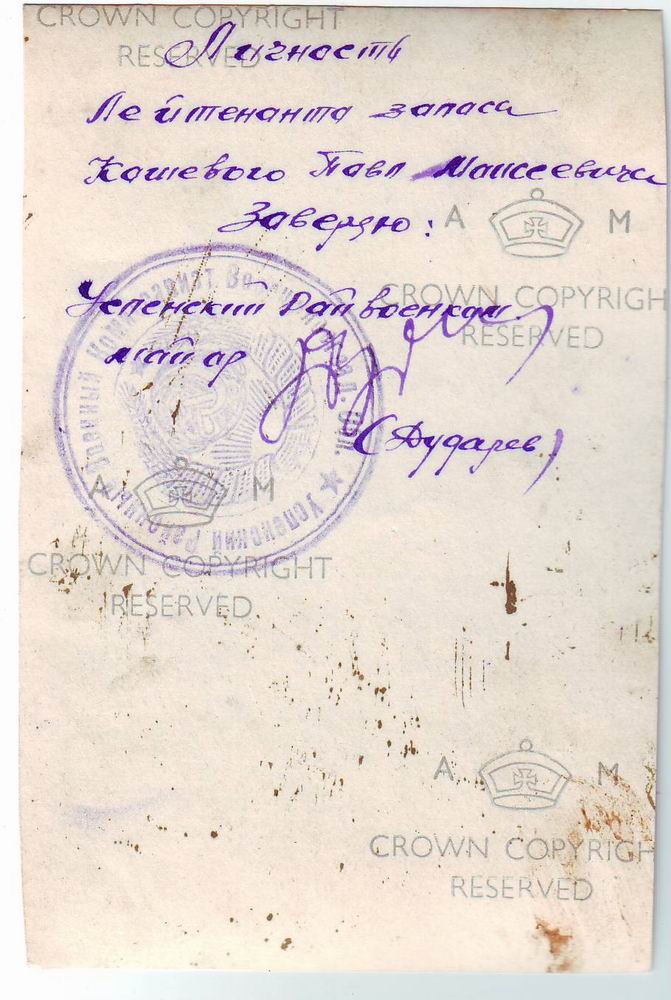 CROWN COPYRIGHT
RESERVED
Личность
Лейтенанта запаса
Кошевого Павл Маисеевича
Заверяю:
A M
CROWN COPYRIGH
RESERVED
Успенский Райвоенком
майор
(Дударев)
Успенский Районный Военный Комиссариат
A M
CROWN COPYRIGHT
RESERVED
A M
CROWN COPYRIGH
RESERVED